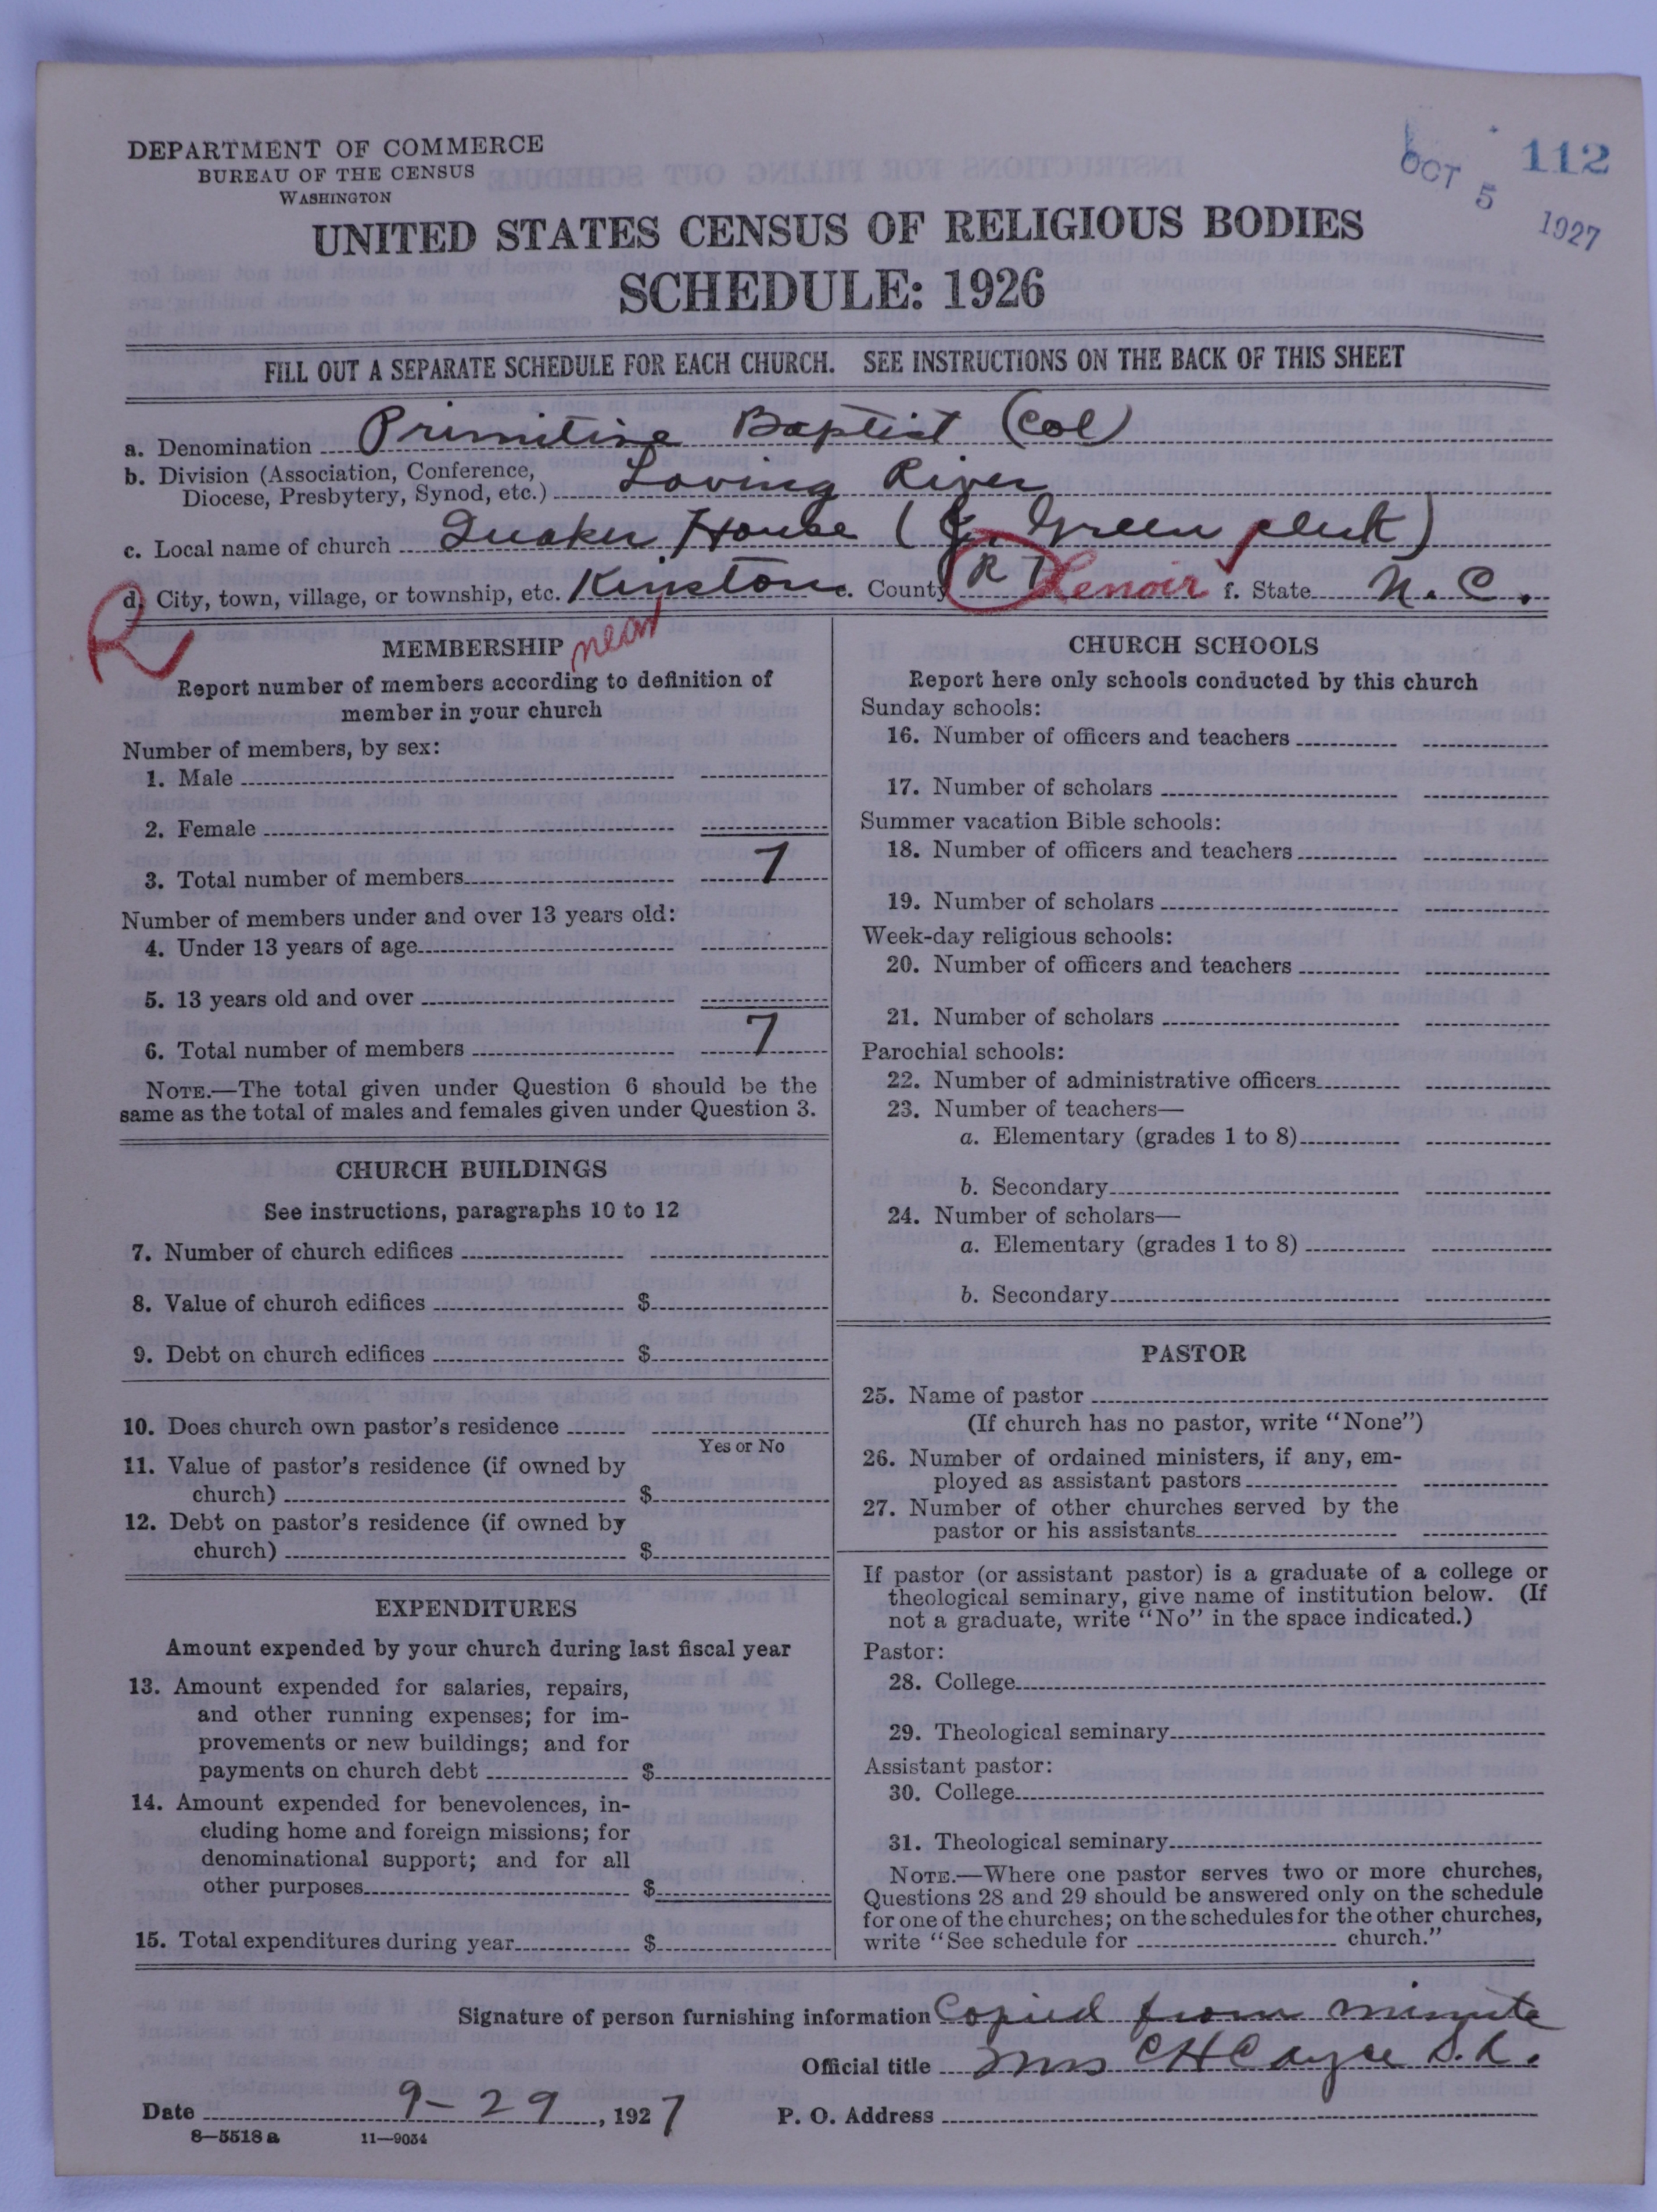 DEPARTMENT OF COMMERCE
BUREAU OF THE CENSUS
WASHINGTON
112
OCT 5 1927
UNITED STATES CENSUS OF RELIGIOUS BODIES
SCHEDULE: 1926
FILL OUT A SEPARATE SCHEDULE FOR EACH CHURCH. SEE INSTRUCTIONS ON THE BACK OF THIS SHEET
a. Denomination Primitive Baptist (Col)
b. Division (Association, Conference, Diocese, Presbytery, Synod, etc.) Loving River
c. Local name of church Quaker House ( Green clerk)
d. City, town, village, or township, etc. Kinston e. County R 1 Lenoir f. State N. C.
R
near
MEMBERSHIP
Report number of members according to definition of
member in your church
Number of members, by sex:
1. Male
2. Female
3. Total number of members 7
Number of members under and over 13 years old:
4. Under 13 years of age
5. 13 years old and over
6. Total number of members 7
NOTE.—The total given under Question 6 should be the
same as the total of males and females given under Question 3.
CHURCH BUILDINGS
See instructions, paragraphs 10 to 12
7. Number of church edifices
8. Value of church edifices $
9. Debt on church edifices $
10. Does church own pastor's residence
Yes or No
11. Value of pastor's residence (if owned by
church) $
12. Debt on pastor's residence (if owned by
church) $
EXPENDITURES
Amount expended by your church during last fiscal year
13. Amount expended for salaries, repairs,
and other running expenses; for im-
provements or new buildings; and for
payments on church debt $
14. Amount expended for benevolences, in-
cluding home and foreign missions; for
denominational support; and for all
other purposes $
15. Total expenditures during year $
CHURCH SCHOOLS
Report here only schools conducted by this church
Sunday schools:
16. Number of officers and teachers
17. Number of scholars
Summer vacation Bible schools:
18. Number of officers and teachers
19. Number of scholars
Week-day religious schools:
20. Number of officers and teachers
21. Number of scholars
Parochial schools:
22. Number of administrative officers
23. Number of teachers—
a. Elementary (grades 1 to 8)
b. Secondary
24. Number of scholars—
a. Elementary (grades 1 to 8)
b. Secondary
PASTOR
25. Name of pastor
(If church has no pastor, write "None")
26. Number of ordained ministers, if any, em-
ployed as assistant pastors
27. Number of other churches served by the
pastor or his assistants
If pastor (or assistant pastor) is a graduate of a college or
theological seminary, give name of institution below. (If
not a graduate, write "No" in the space indicated.)
Pastor:
28. College
29. Theological seminary
Assistant pastor:
30. College
31. Theological seminary
NOTE.—Where one pastor serves two or more churches,
Questions 28 and 29 should be answered only on the schedule
for one of the churches; on the schedules for the other churches,
write "See schedule for church."
Signature of person furnishing information Copied from minute
Official title Mrs C H Cayce S. A.
Date 9-29, 1927 P. O. Address
8—5518 a 11—9034